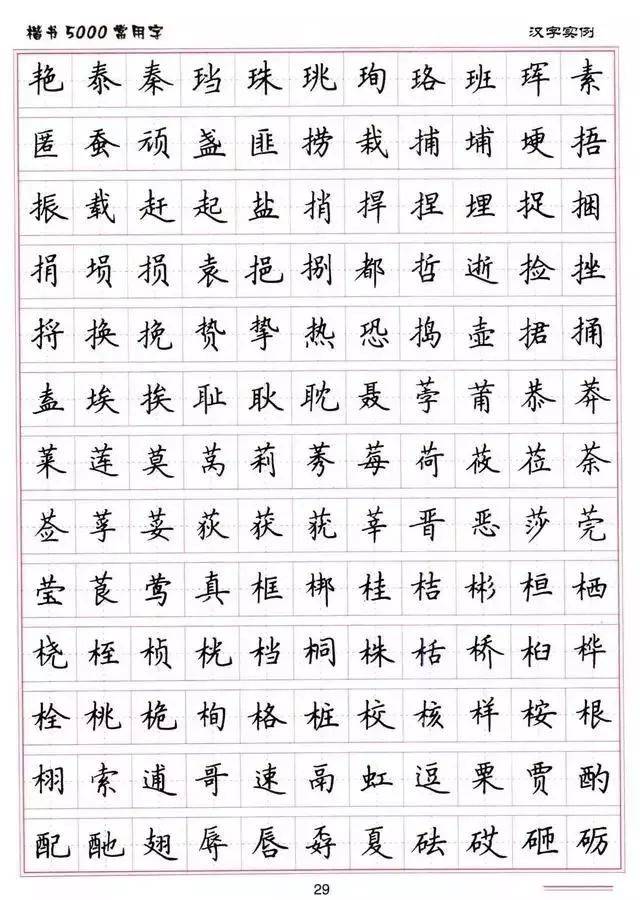 楷书5000常用字 汉字实例
艳泰秦珰珠珧珣珞班珲素
匿蚕顽盏匪捞栽捕埔埂捂
振载赶起盐捎捍捏埋捉捆
捐埙损袁挹捌都哲逝捡挫
捋换挽贽挚热恐捣壶捃捅
盍埃挨耻耿耽聂莩莆恭莽
莱莲莫莴莉莠莓荷莜莅荼
莶莩荽荻获莸莘晋恶莎莞
莹莨莺真框梆桂桔彬桓栖
桡桎桢桄档桐株栝桥桕桦
栓桃桅栒格桩校核样桉根
栩索逋哥速鬲虹逗栗贾酌
配酏翅辱唇孬夏砝砹砸砺
29